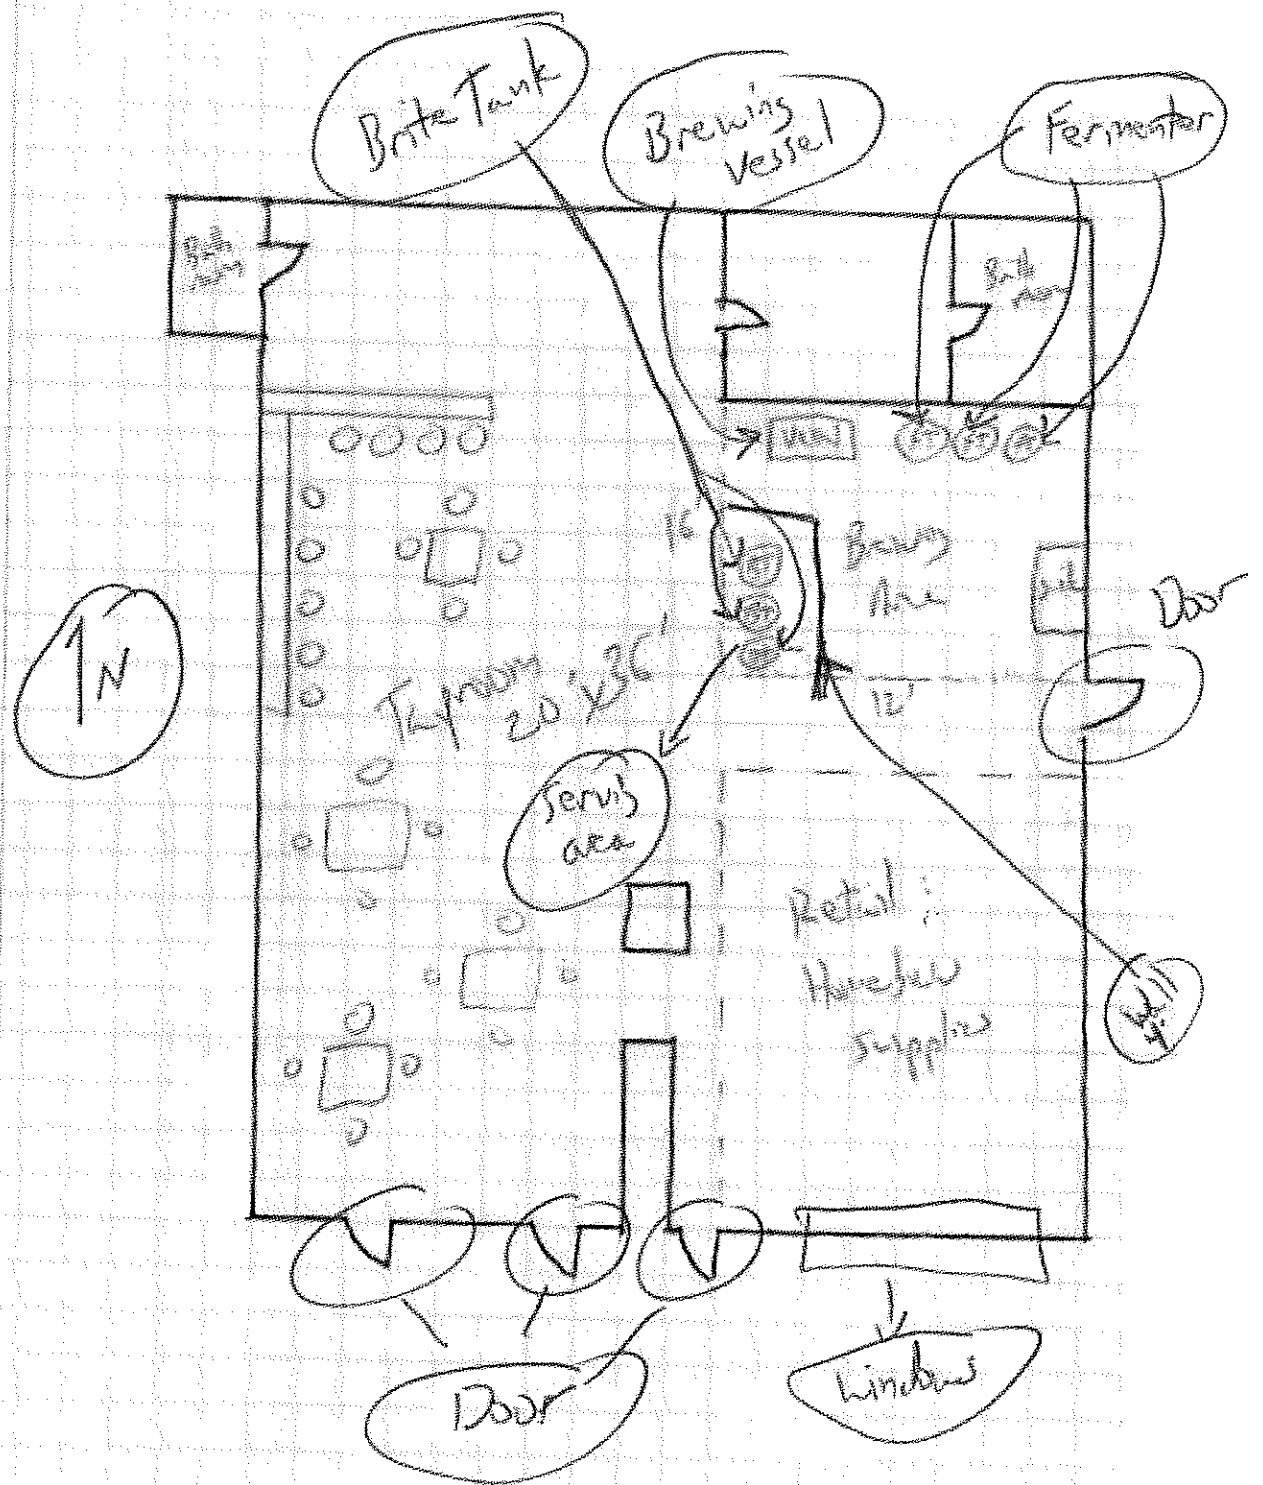 Brite Tank
Brewing
vessel
Fermenter
Bath
room
Bath
room
FT
FT
15'
Brewing
Area
Door
N
Taproom
20'x36'
12'
Serving
area
Retail:
Homebrew
supplies
Wall
4'
Door
Windows